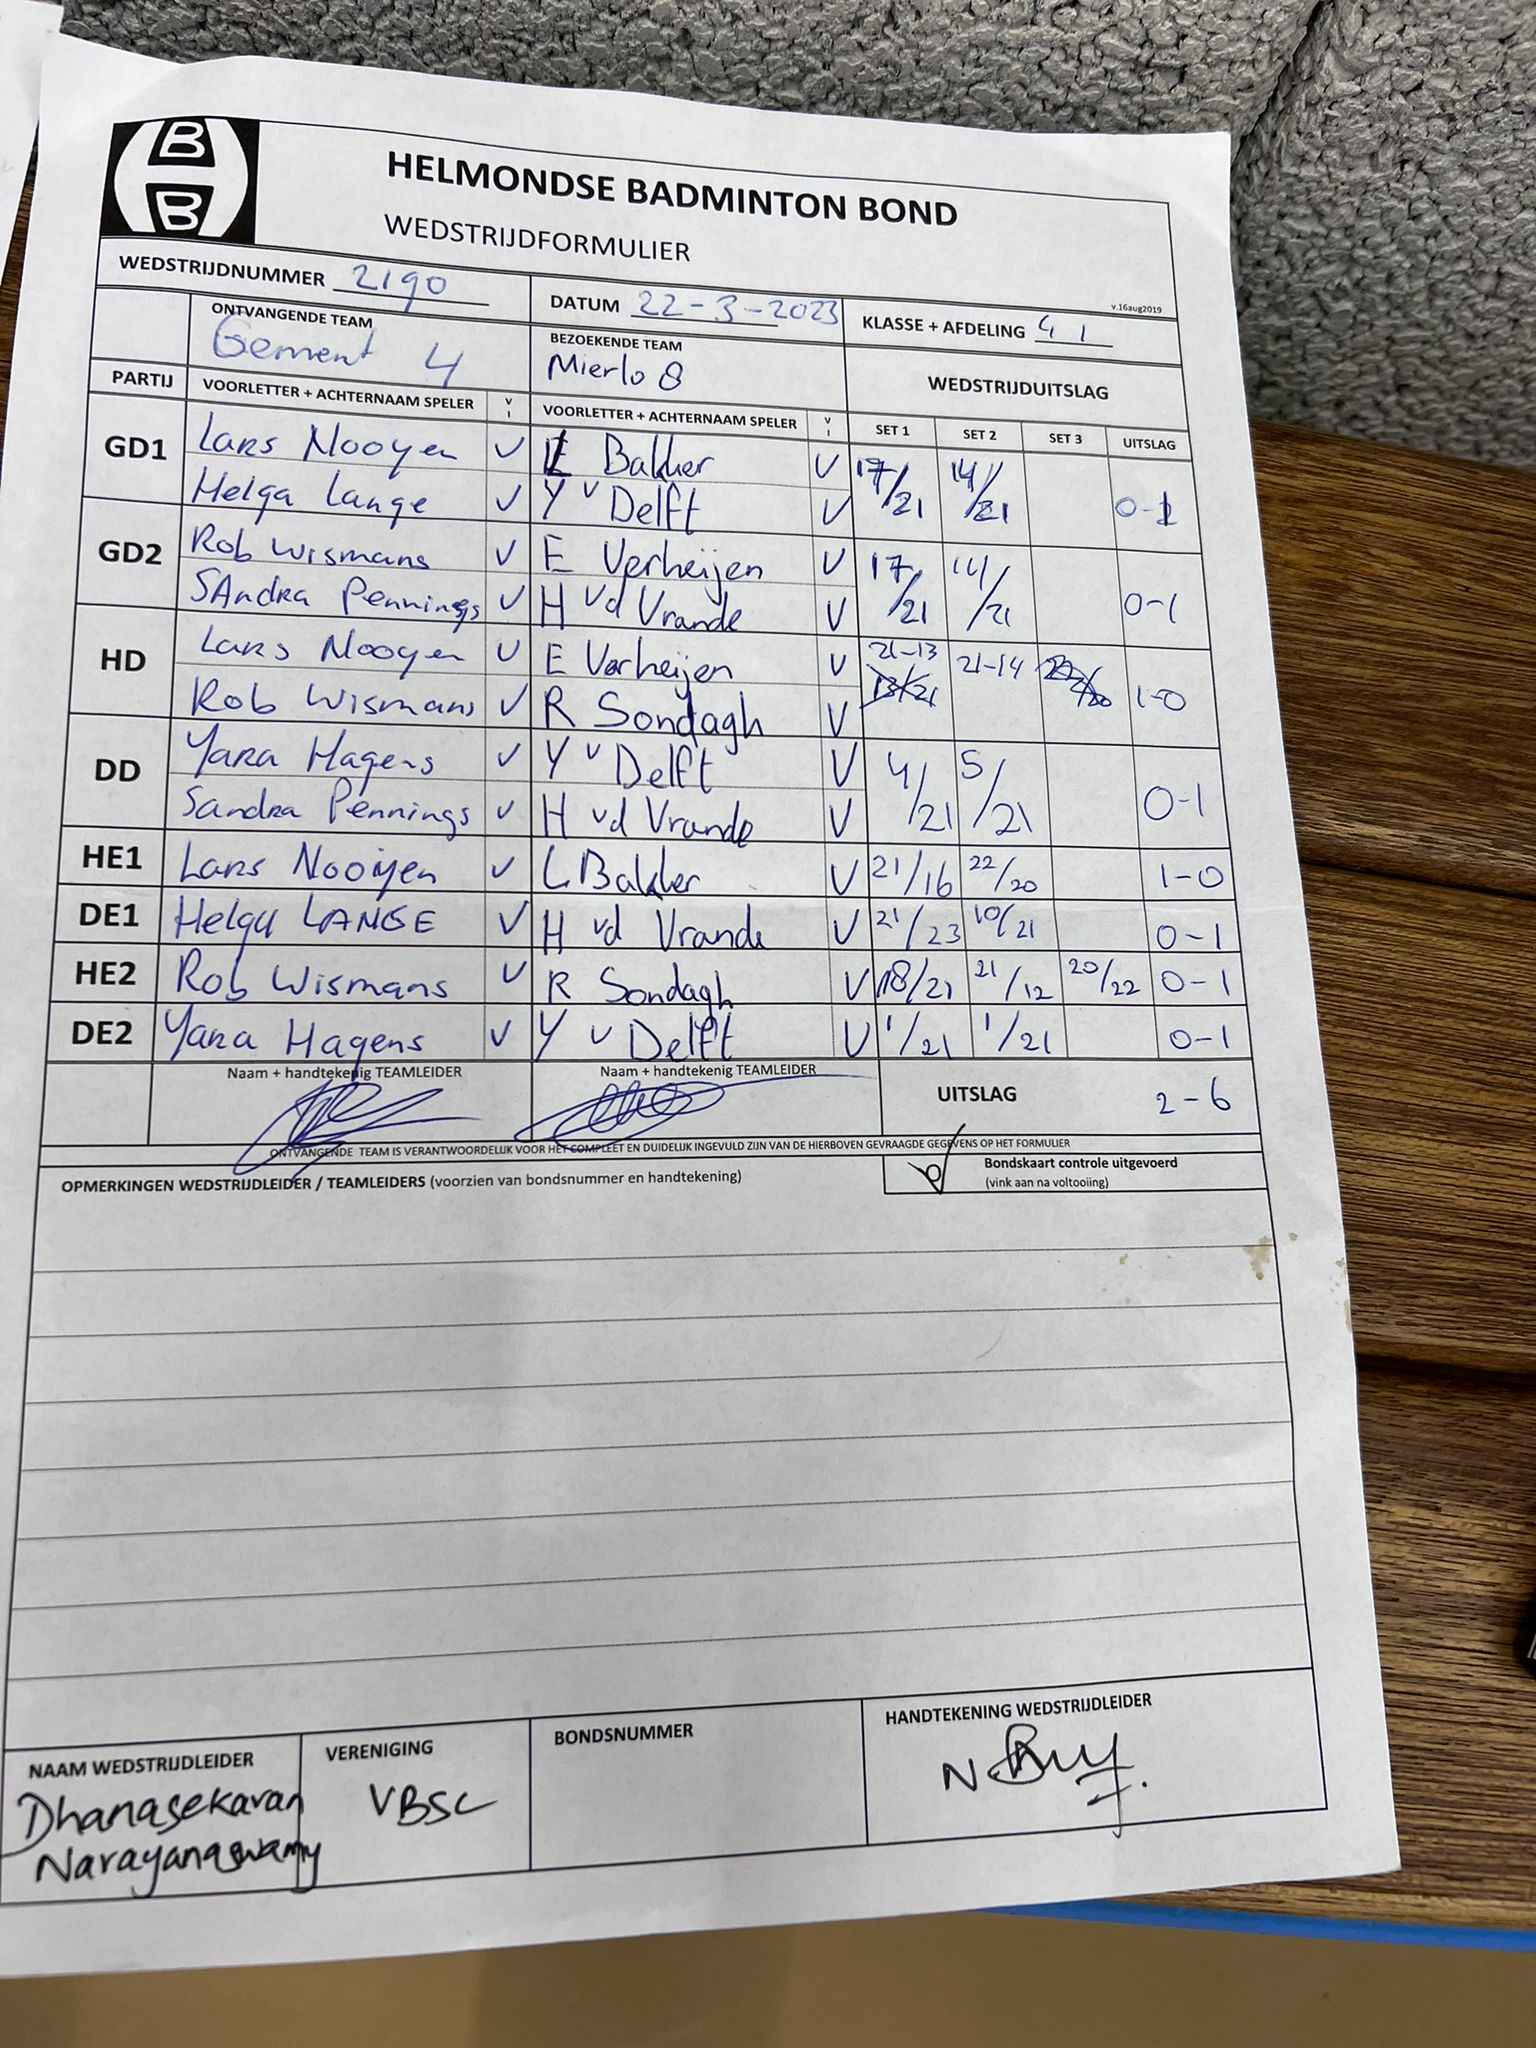 B
B
HELMONDSE BADMINTON BOND
WEDSTRIJDFORMULIER
v.16aug2019
WEDSTRIJDNUMMER 2190 DATUM 22-3-2023 KLASSE + AFDELING 4 1
ONTVANGENDE TEAM BEZOEKENDE TEAM WEDSTRIJDUITSLAG
Gement 4 Mierlo 8
PARTIJ VOORLETTER + ACHTERNAAM SPELER V I VOORLETTER + ACHTERNAAM SPELER V I SET 1 SET 2 SET 3 UITSLAG
GD1 Lars Nooyen V L Bakker V 17/21 14/21 0-1
Helga Lange V Y v Delft V
GD2 Rob Wismans V E Verheijen V 17/21 14/21 0-1
SAndRA Pennings V H vd Vrande V
HD Lars Nooyen V E Verheijen V 21-13 21-14 1-0
Rob Wismans V R Sondagh V 13/21
DD Yara Hagens V Y v Delft V 4/21 5/21 0-1
Sandra Pennings V H vd Vrande V
HE1 Lars Nooijen V L Bakker V 21/16 22/20 1-0
DE1 Helga LANGE V H vd Vrande V 21/23 10/21 0-1
HE2 Rob Wismans V R Sondagh V 18/21 21/12 20/22 0-1
DE2 Yara Hagens V Y v Delft V 1/21 1/21 0-1
Naam + handtekenig TEAMLEIDER Naam + handtekenig TEAMLEIDER UITSLAG 2-6
ONTVANGENDE TEAM IS VERANTWOORDELIJK VOOR HET COMPLEET EN DUIDELIJK INGEVULD ZIJN VAN DE HIERBOVEN GEVRAAGDE GEGEVENS OP HET FORMULIER
OPMERKINGEN WEDSTRIJDLEIDER / TEAMLEIDERS (voorzien van bondsnummer en handtekening) Bondskaart controle uitgevoerd
(vink aan na voltooiing)
NAAM WEDSTRIJDLEIDER VERENIGING BONDSNUMMER HANDTEKENING WEDSTRIJDLEIDER
Dhanasekaran VBSC
Narayanaswamy